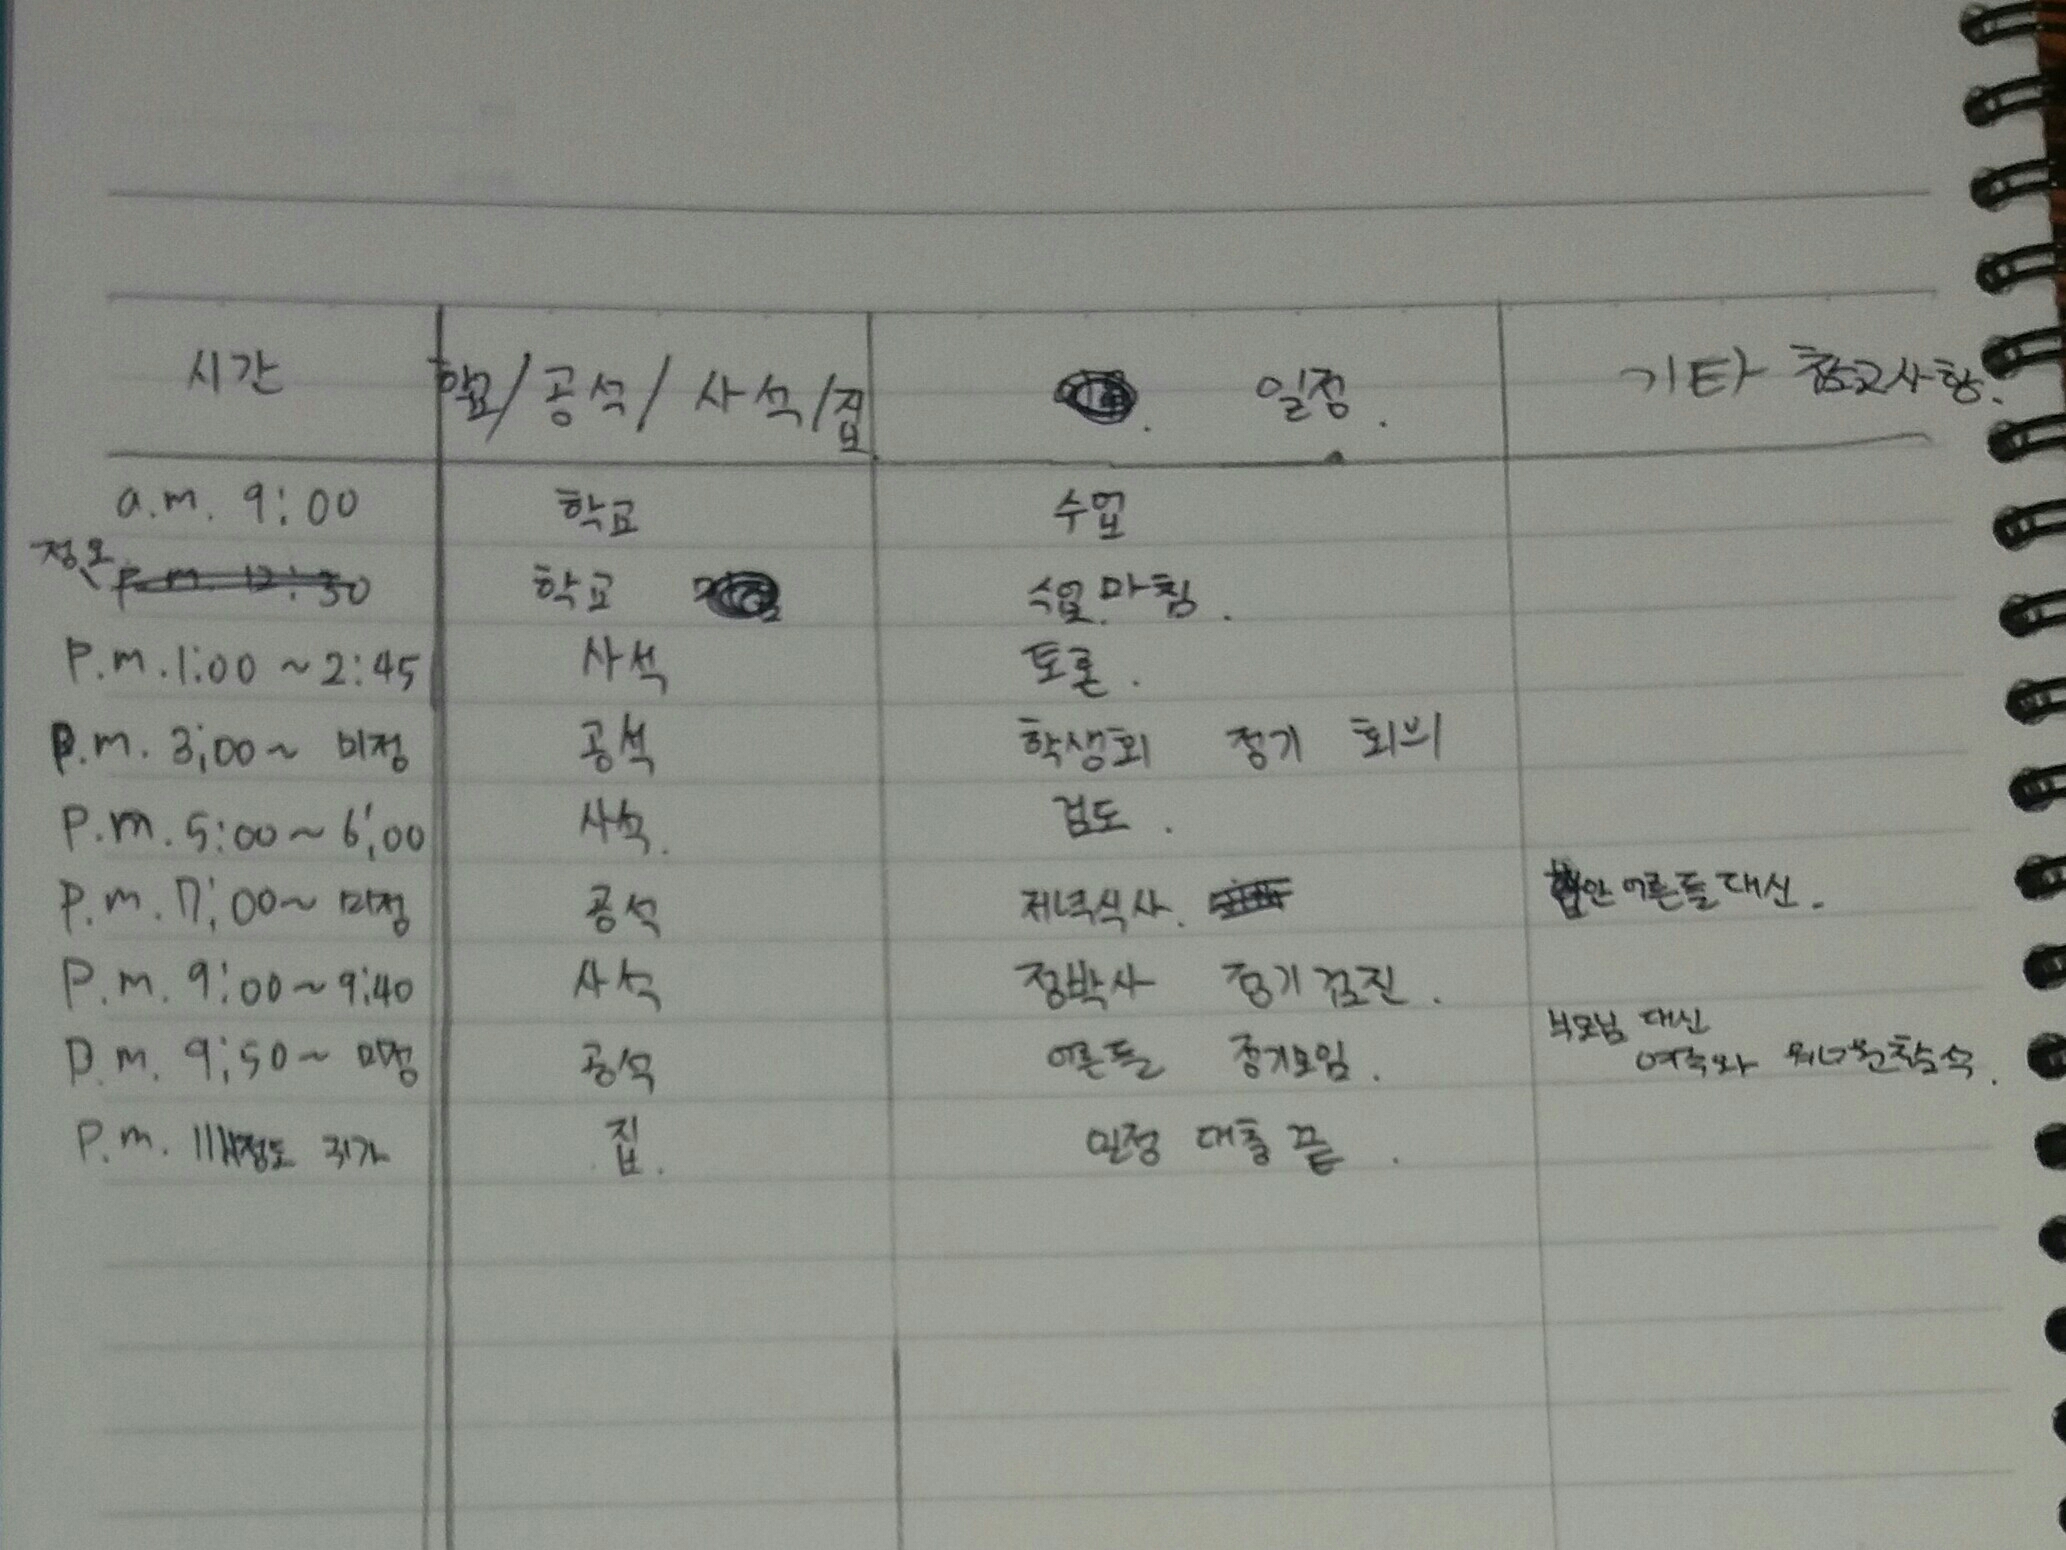 시간 학교/공석/사석/집 일정. 기타 참고사항.
a.m. 9:00 학교 수업
정오 학교 수업 마침.
P.m. 1:00 ~ 2:45 사석 토론.
P.m. 3:00~ 미정 공석 학생회 정기 회의
P.m. 5:00~ 6:00 사석. 검도.
P.m. 7:00~ 미정 공석 저녁식사. 집안 어른들 대신.
P.m. 9:00~ 9:40 사석 정박사 정기검진.
P.m. 9:50~ 미정 공석 어른들 정기모임. 부모님 대신
P.m. 11시정도 귀가 집. 일정 대충 끝.